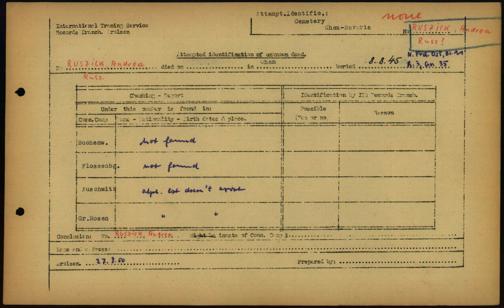 International Tracing Service
Records Branch. Arolsen
Attempt.Identific.:
Cemetery
Cham-Bavaria
none
No RUSZICK, Andrea
Russ!
Attempted identification of unknown dead.
No RUSZICK, Andrea died on in Cham buried 8.8.45
Russ.
Checking - Report
Identification by ITS Records Branch.
Under this number is found in:
Conc.Camp Name - Nationality - Birth dates & place.
Possible
Yes or no.
Reason
Buchenw. not found
Flossenbg. not found
Auschwitz alph. list doesn't exist
Gr.Rosen " "
Conclusion: No. RUSZICK, Andrea might be inmate of Conc. Camp:
Arolsen, 27.3.50 Prepared by: